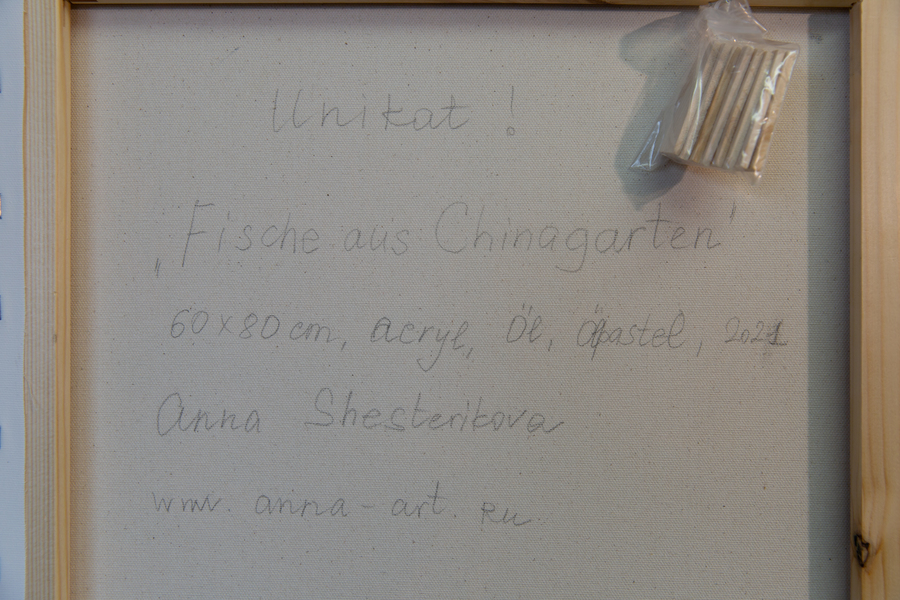 Unikat !
„Fische aus Chinagarten"
60x80 cm, acryl, Öl, Ölpastel, 2021
Anna Shesterikova
www.anna-art.ru